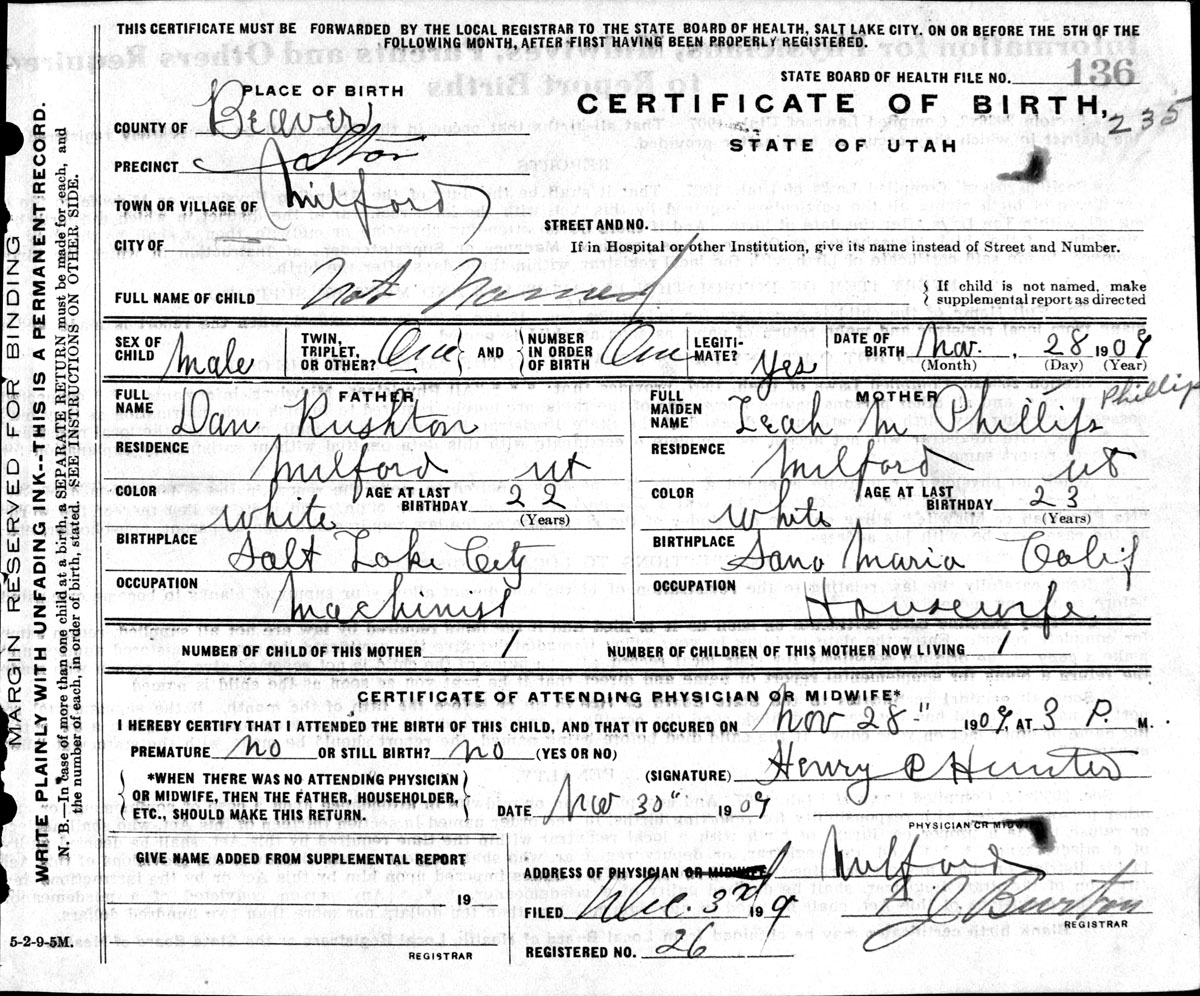 THIS CERTIFICATE MUST BE FORWARDED BY THE LOCAL REGISTRAR TO THE STATE BOARD OF HEALTH, SALT LAKE CITY. ON OR BEFORE THE 5TH OF THE
FOLLOWING MONTH, AFTER FIRST HAVING BEEN PROPERLY REGISTERED.
STATE BOARD OF HEALTH FILE NO. 136
PLACE OF BIRTH
CERTIFICATE OF BIRTH, 235
STATE OF UTAH
COUNTY OF Beaver
PRECINCT
TOWN OR VILLAGE OF Milford
STREET AND NO.
CITY OF
If in Hospital or other Institution, give its name instead of Street and Number.
FULL NAME OF CHILD Not Named
If child is not named, make
supplemental report as directed
SEX OF CHILD Male TWIN, TRIPLET, OR OTHER? One AND NUMBER IN ORDER OF BIRTH One LEGITI-MATE? Yes DATE OF BIRTH Nov. , 28 1909
(Month) (Day) (Year)
FATHER MOTHER Phillips
FULL NAME Dan Rushton FULL MAIDEN NAME Leah M Phillips
RESIDENCE Milford Ut RESIDENCE Milford Ut
COLOR White AGE AT LAST BIRTHDAY 22 (Years) COLOR White AGE AT LAST BIRTHDAY 23 (Years)
BIRTHPLACE Salt Lake City BIRTHPLACE Sana Maria Calif
OCCUPATION Machinist OCCUPATION Housewife
NUMBER OF CHILD OF THIS MOTHER 1 NUMBER OF CHILDREN OF THIS MOTHER NOW LIVING 1
CERTIFICATE OF ATTENDING PHYSICIAN OR MIDWIFE*
I HEREBY CERTIFY THAT I ATTENDED THE BIRTH OF THIS CHILD, AND THAT IT OCCURED ON Nov 28" 1909, AT 3 P. M.
PREMATURE? no OR STILL BIRTH? no (YES OR NO)
*WHEN THERE WAS NO ATTENDING PHYSICIAN
OR MIDWIFE, THEN THE FATHER, HOUSEHOLDER,
ETC., SHOULD MAKE THIS RETURN.
(SIGNATURE) Henry P Hunter
DATE Nov 30" 1909
PHYSICIAN OR MIDWIFE
GIVE NAME ADDED FROM SUPPLEMENTAL REPORT
19
REGISTRAR
ADDRESS OF PHYSICIAN OR MIDWIFE Milford
FILED Dec. 3rd 19 9 Burton
REGISTRAR
REGISTERED NO. 26
5-2-9-5M.
MARGIN RESERVED FOR BINDING
WRITE PLAINLY WITH UNFADING INK--THIS IS A PERMANENT RECORD.
N. B.—In case of more than one child at a birth, a SEPARATE RETURN must be made for each, and
the number of each, in order of birth, stated. SEE INSTRUCTIONS ON OTHER SIDE.